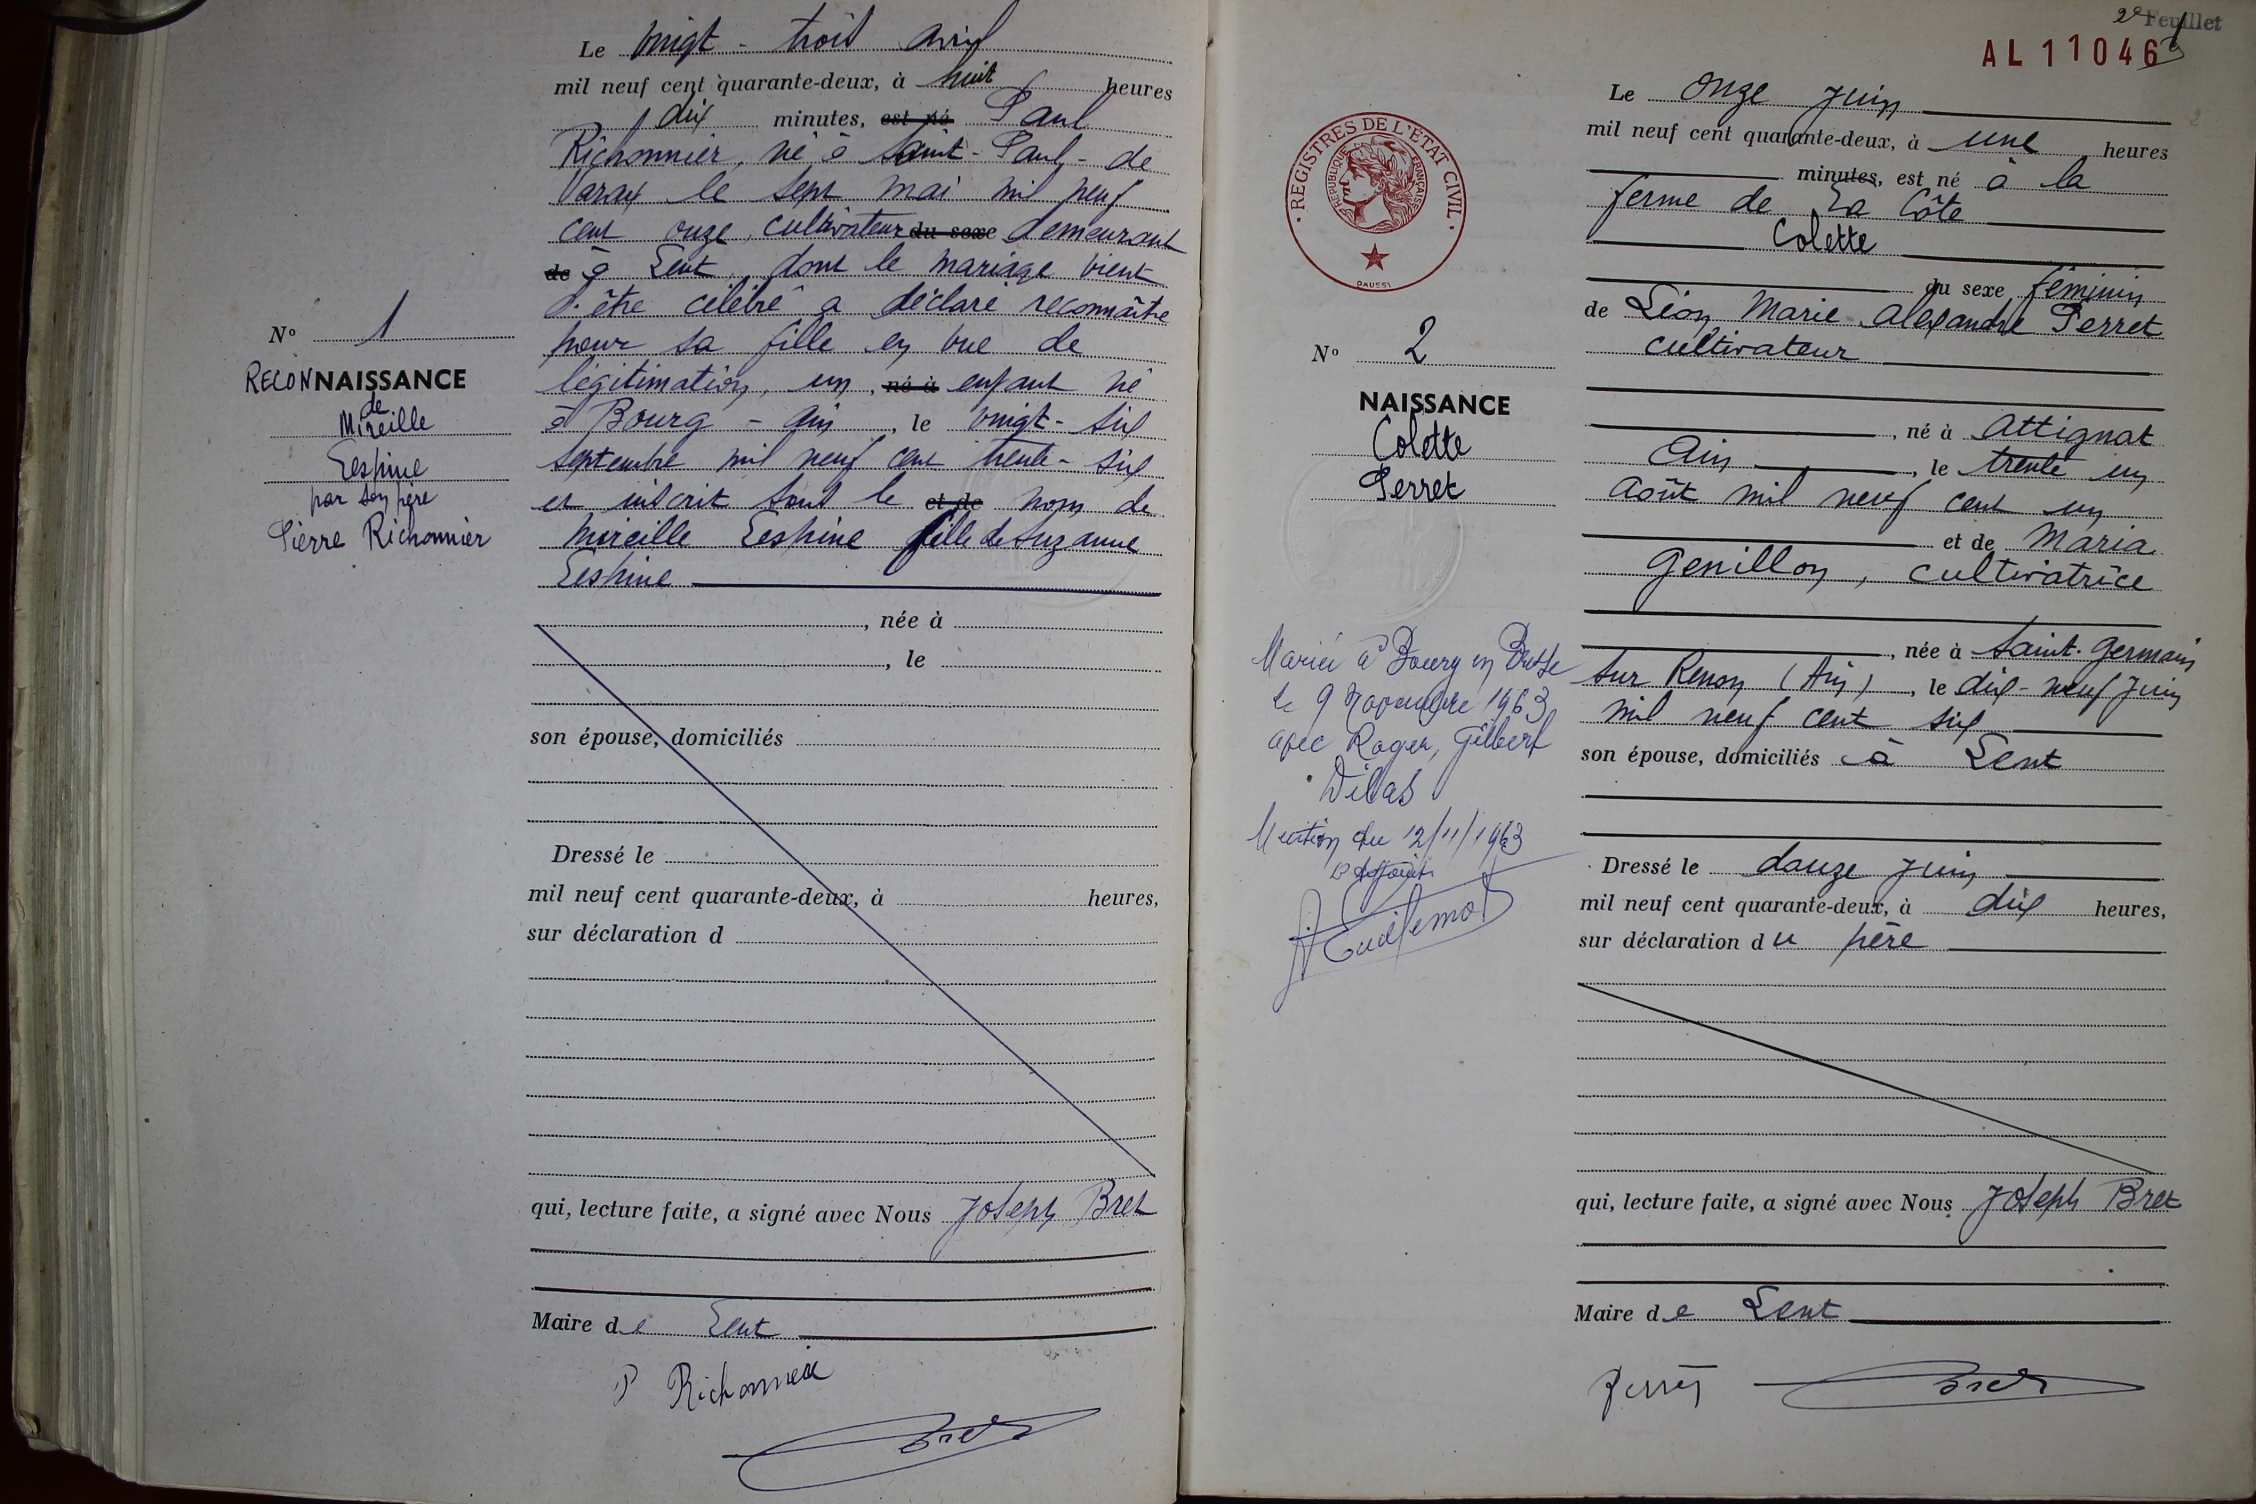 Le vingt - trois avril
mil neuf cent quarante-deux, à huit heures
dix minutes, est né Paul
Richonnier, né à Saint-Paul-de
Varax le sept mai mil neuf
cent onze, cultivateur du sexe demeurant
de à Lent, dont le mariage vient
d'être célébré a déclaré reconnaître
pour sa fille en vue de
légitimation, un, né à enfant né
à Bourg - Ain, le vingt-six
septembre mil neuf cent trente-six
et inscrit sous le et de nom de
Mireille Lespine fille de Suzanne
Lespine
, née à
, le
son épouse, domiciliés
Dressé le
mil neuf cent quarante-deux, à heures,
sur déclaration d
qui, lecture faite, a signé avec Nous Joseph Bret
Maire de Lent
P Richonnier
Bret
N° 1
RECONNAISSANCE
de
Mireille
Lespine
par son père
Pierre Richonnier
2e Feuillet
AL 11046
2
REGISTRES DE L'ÉTAT CIVIL
RÉPUBLIQUE FRANÇAISE
DAUSSI
N° 2
NAISSANCE
Colette
Perret
Mariée à Bourg en Bresse
le 9 Novembre 1963
avec Roger, Gilbert
Dilas
Mention du 12/11/1963
L'Adjoint
Le onze juin
mil neuf cent quarante-deux, à une heures
minutes, est né à la
ferme de La Côte
Colette
du sexe féminin
de Léon Marie Alexandre Perret
cultivateur
, né à Attignat
Ain, le trente un
août mil neuf cent un
et de Maria
Genillon, cultivatrice
, née à Saint-Germain
sur Renon (Ain), le dix-neuf juin
mil neuf cent six
son épouse, domiciliés à Lent
Dressé le douze juin
mil neuf cent quarante-deux, à dix heures,
sur déclaration du père
qui, lecture faite, a signé avec Nous Joseph Bret
Maire de Lent
Perret Bret